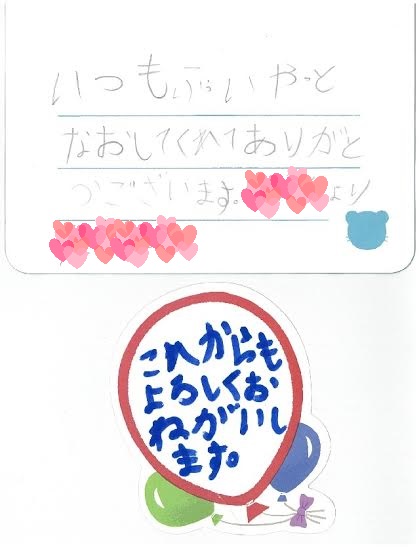 いつもぶれいやっと
なおしてくれてありがと
うございます。より
これからも
よろしくお
ねがいし
ます。